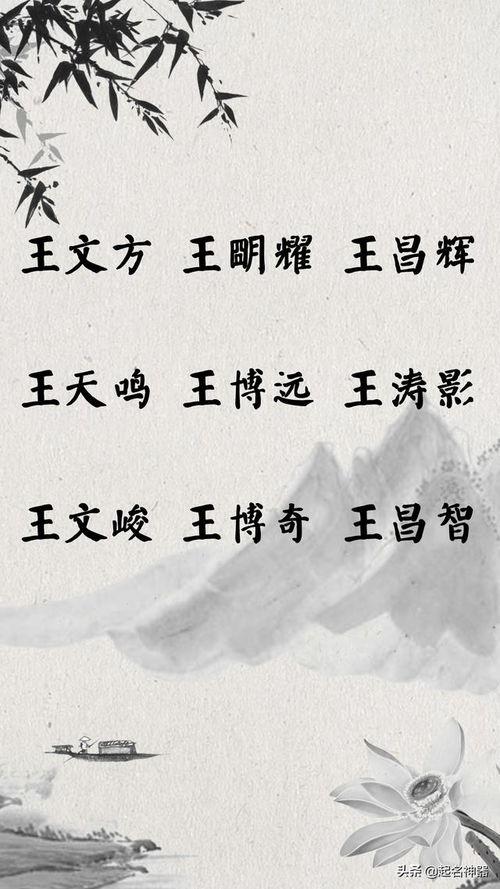 王文方 王明耀 王昌辉
王天鸣 王博远 王涛影
王文峻 王博奇 王昌智
头条 @起名神器